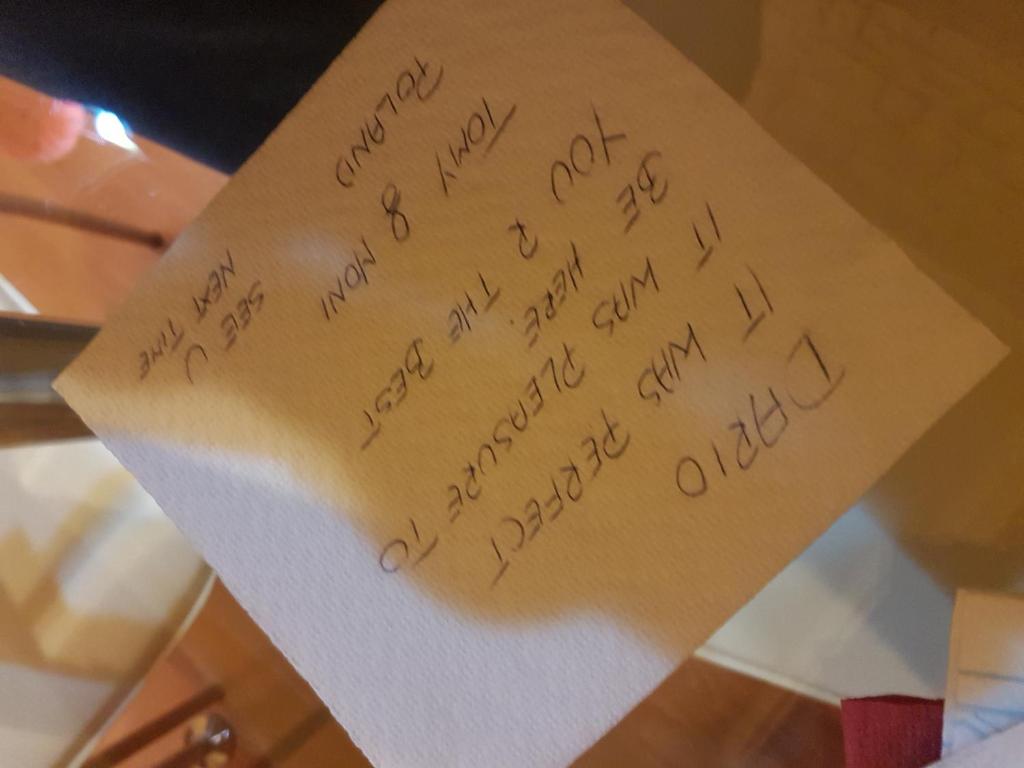 DARIO
IT WAS PERFECT
IT WAS PLEASURE TO
BE HERE.
YOU R THE BEST
TOMY & MONI
POLAND
SEE U
NEXT TIME